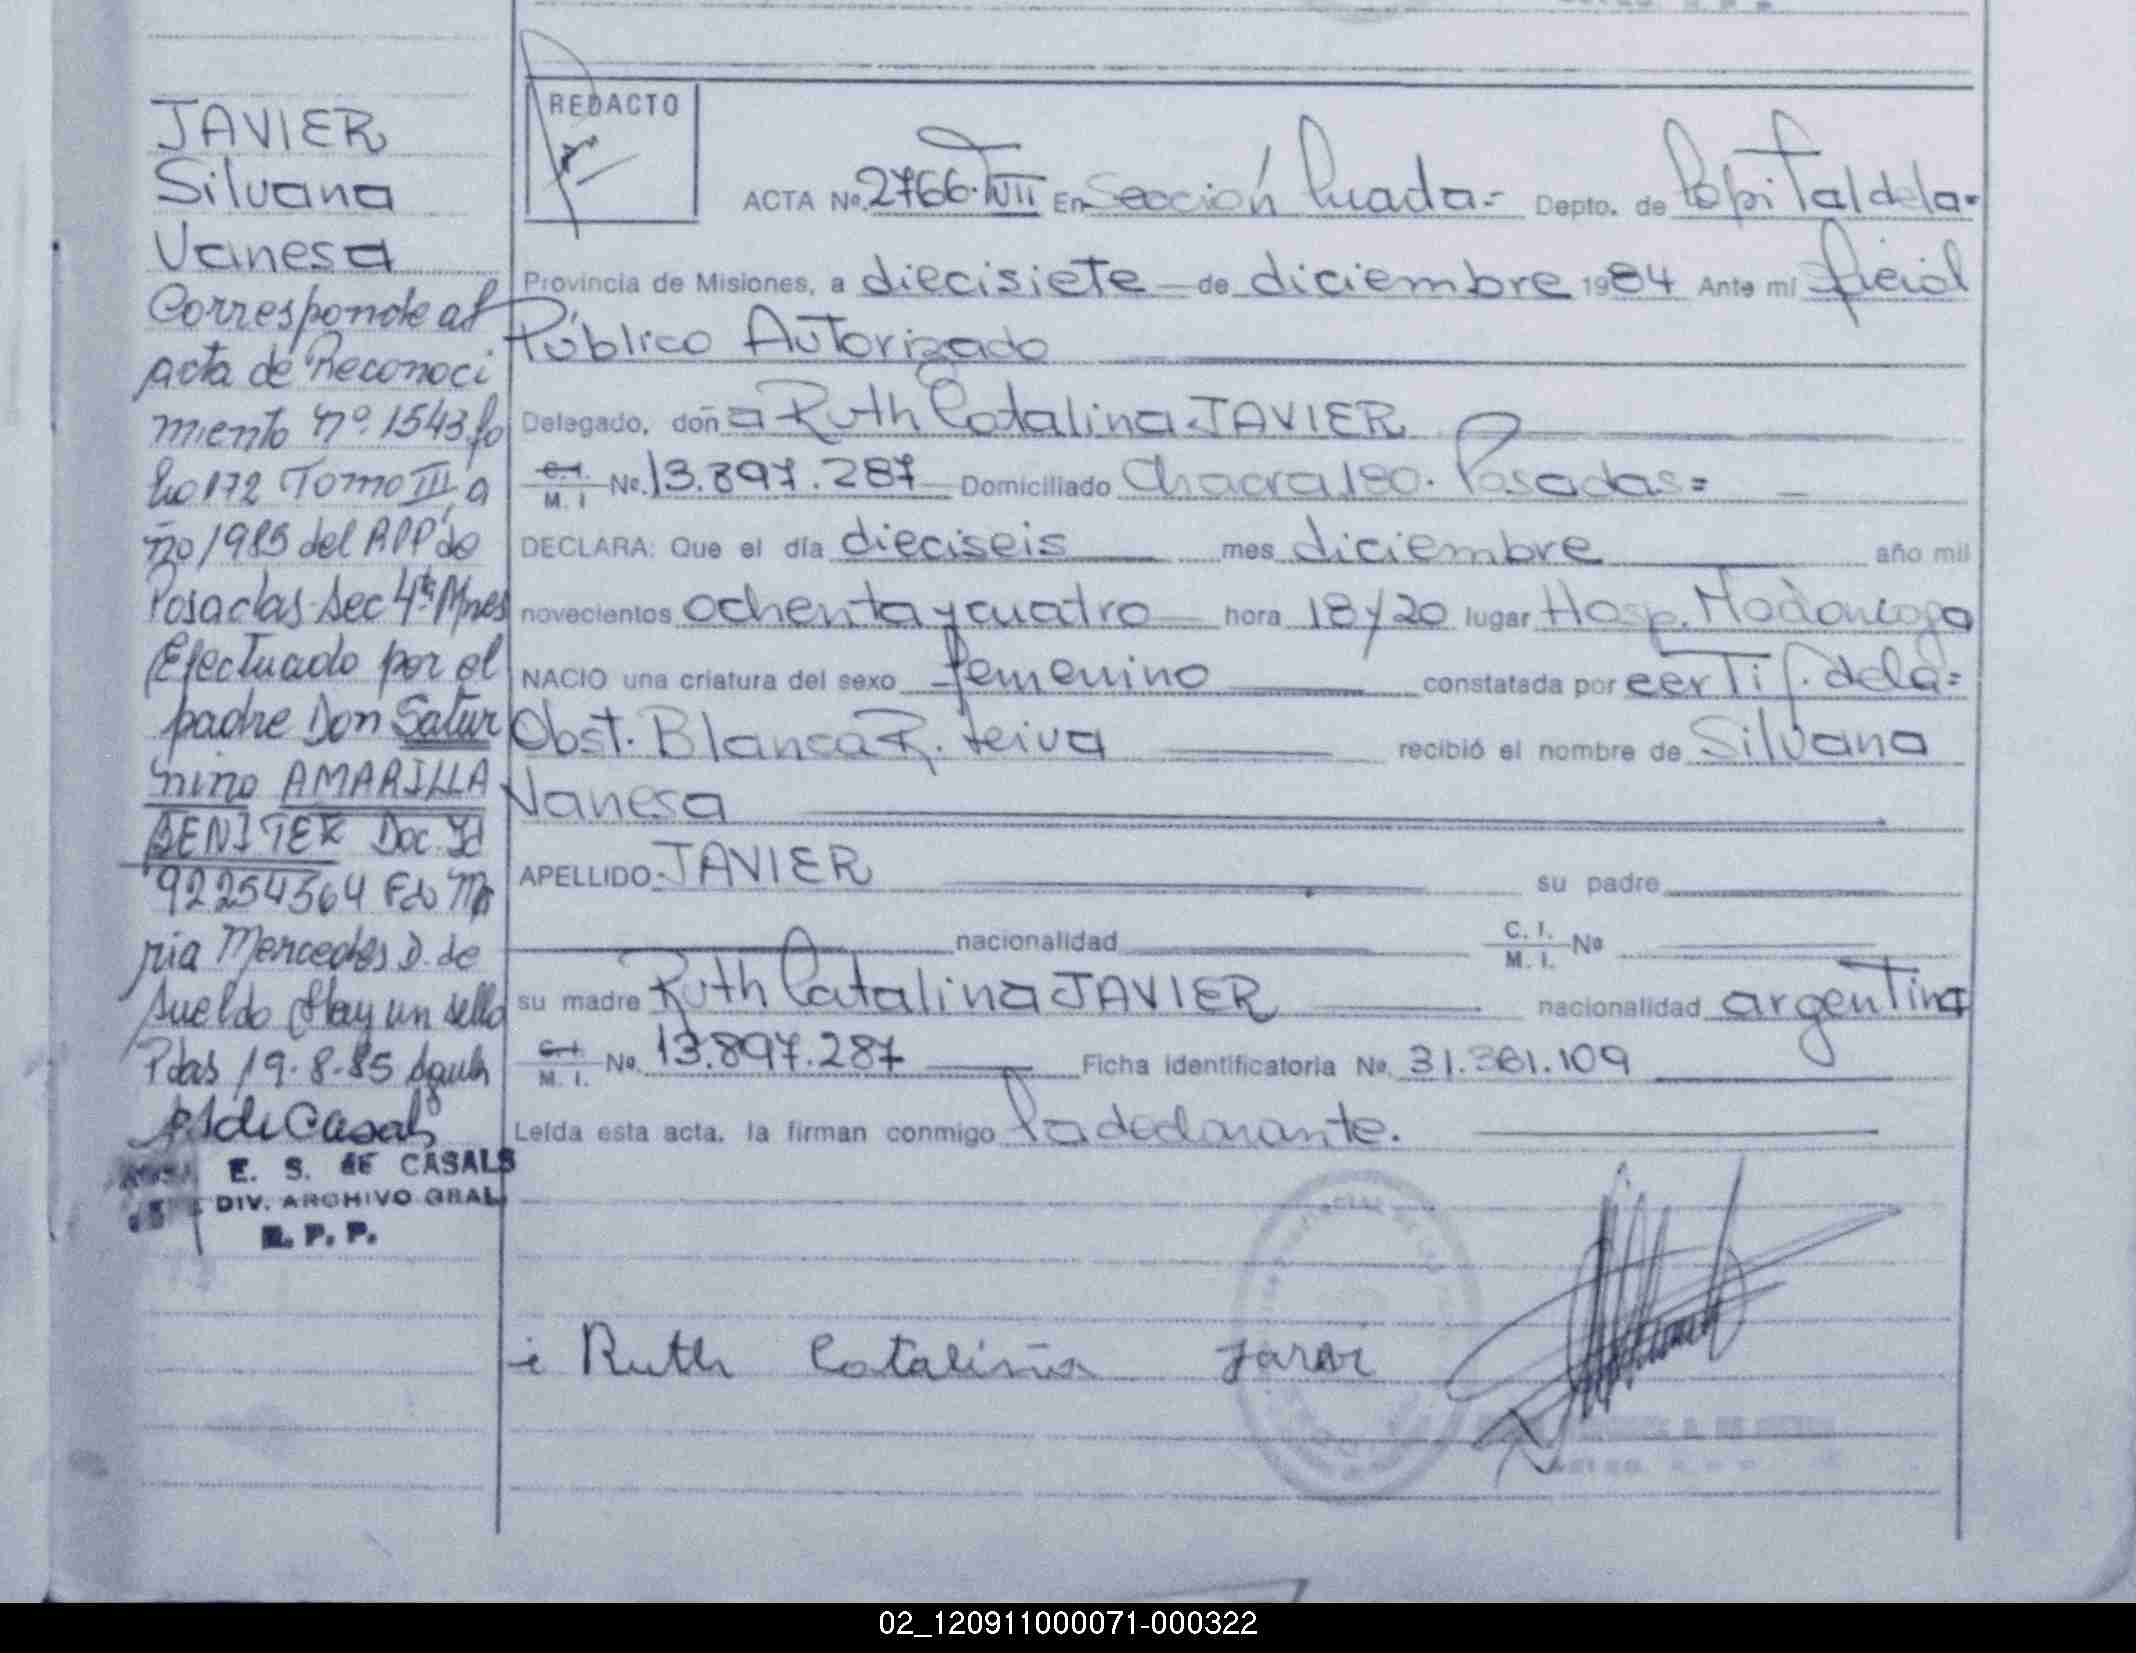 JAVIER
Silvana
Vanesa
Corresponde al
acta de Reconoci
miento nº 1543 fo
lio 172 Tomo III, a
ño 1985 del RPP de
Posadas Sec 4ta Mnes
Efectuado por el
padre Don Satur
nino AMARILLA
BENITEZ Doc. Id
92254564 Fdo Ma
ria Mercedes D. de
Sueldo Hay un sello
Pdas 19-8-85
de Casals
E. S. de CASALS
DIV. ARCHIVO GRAL
R. P. P.
REDACTO
ACTA Nº 2766. TVII En Sección Cuarta= Depto. de Capital de la=
Provincia de Misiones, a diecisiete de diciembre 1984 Ante mí Oficial
Público Autorizado
Delegado, doña Ruth Catalina JAVIER
C.I. M. I Nº. 13.897.287 Domiciliado Chacra 180. Posadas=
DECLARA: Que el día dieciseis mes diciembre año mil
novecientos ochenta y cuatro hora 18y20 lugar Hosp. Madariaga
NACIO una criatura del sexo femenino constatada por certif. de la=
Obst. Blanca R. Leiva recibió el nombre de Silvana
Vanesa
APELLIDO JAVIER su padre
nacionalidad C. I. M. I. Nº
su madre Ruth Catalina JAVIER nacionalidad argentina
C.I. M. I. Nº. 13.897.287 Ficha identificatoria Nº. 31.381.109
Leída esta acta, la firman conmigo la declarante.
Ruth Catalina
02_120911000071-000322